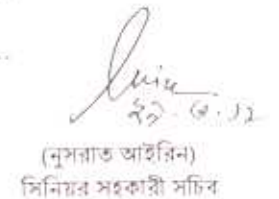 ২৯.৫.১২
(নুসরাত আইরিন)
সিনিয়র সহকারী সচিব